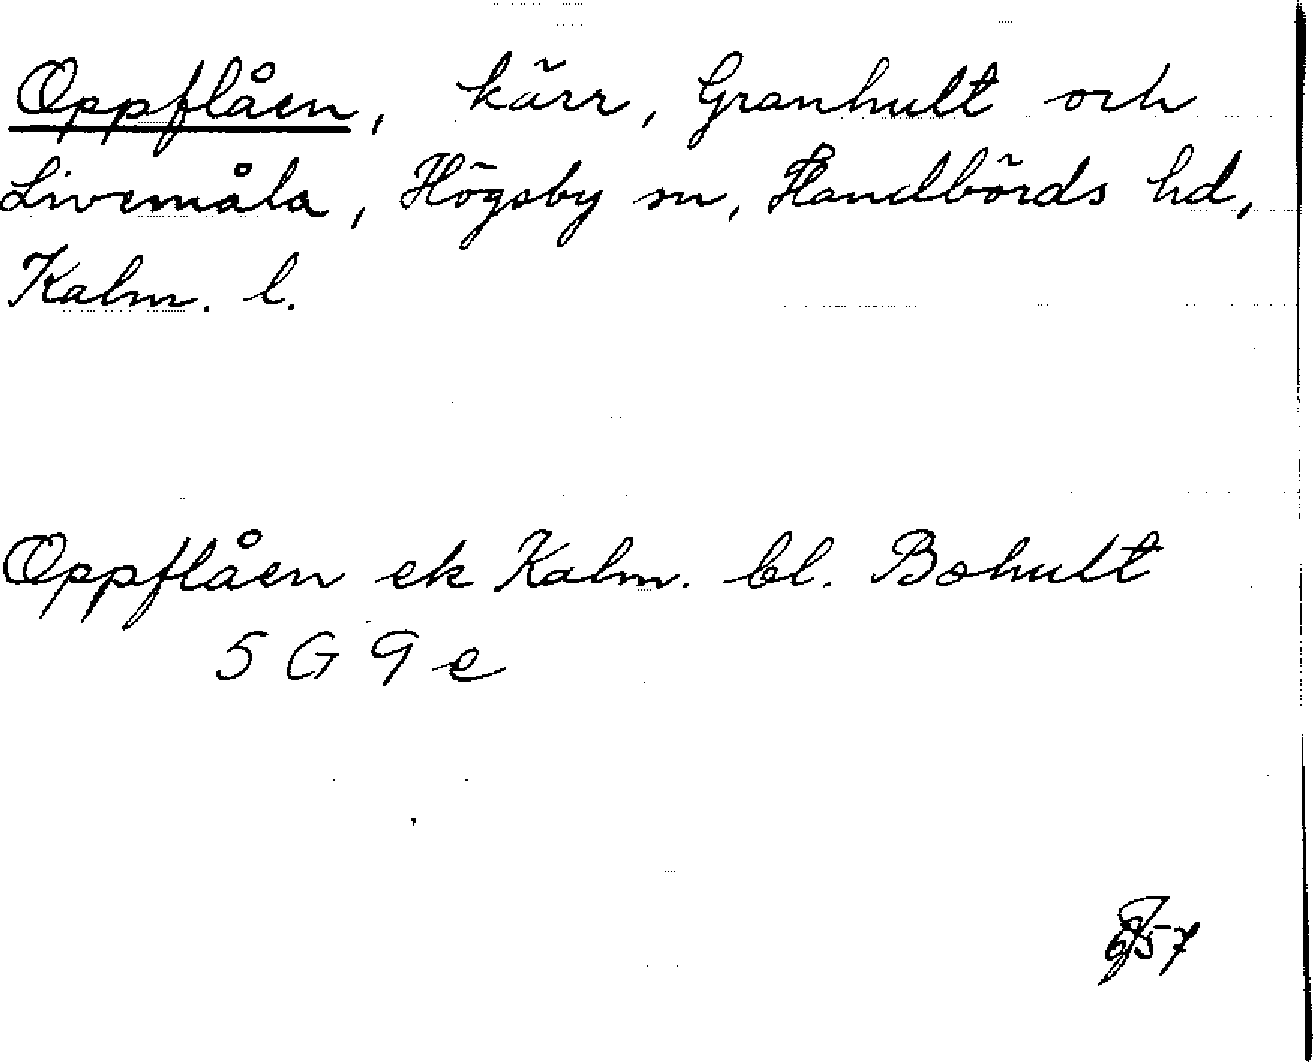 Oppflåen, kärr, Granhult och
Livemåla, Högsby sn, Handbörds hd,
Kalm. l.
Oppflåen ek Kalm. bl. Bohult
5 G 9 e